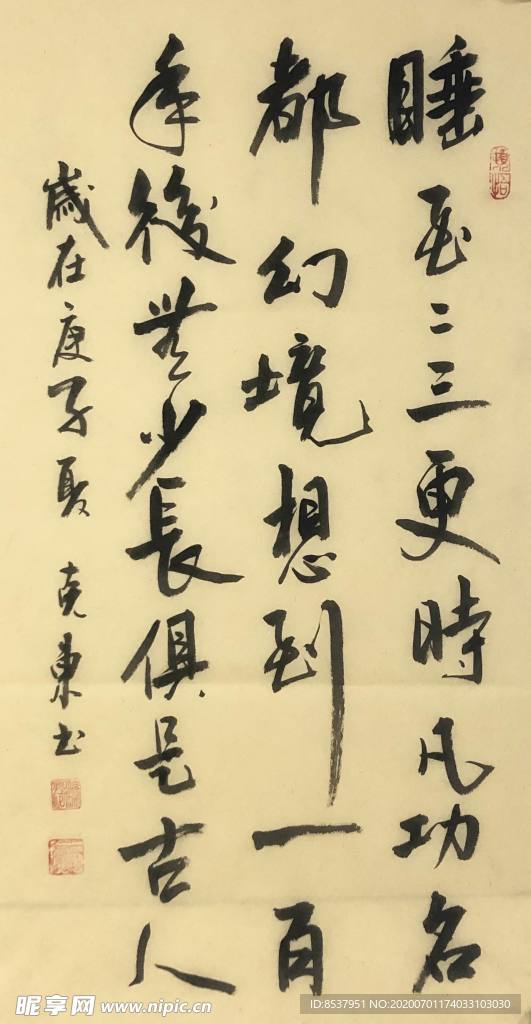 睡至二三更時凡功名
都幻境想到一百
年後無少長俱是古人
歲在庚子夏 克東书
昵享网 www.nipic.cn
ID:8537951 NO:20200701174033103030